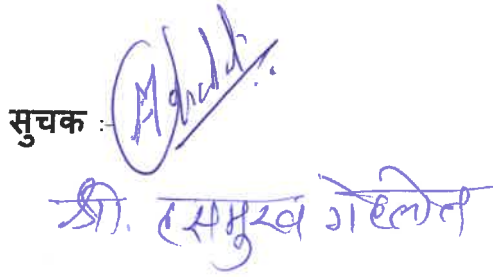 सुचक :-
श्री. हसमुख गेहलोत